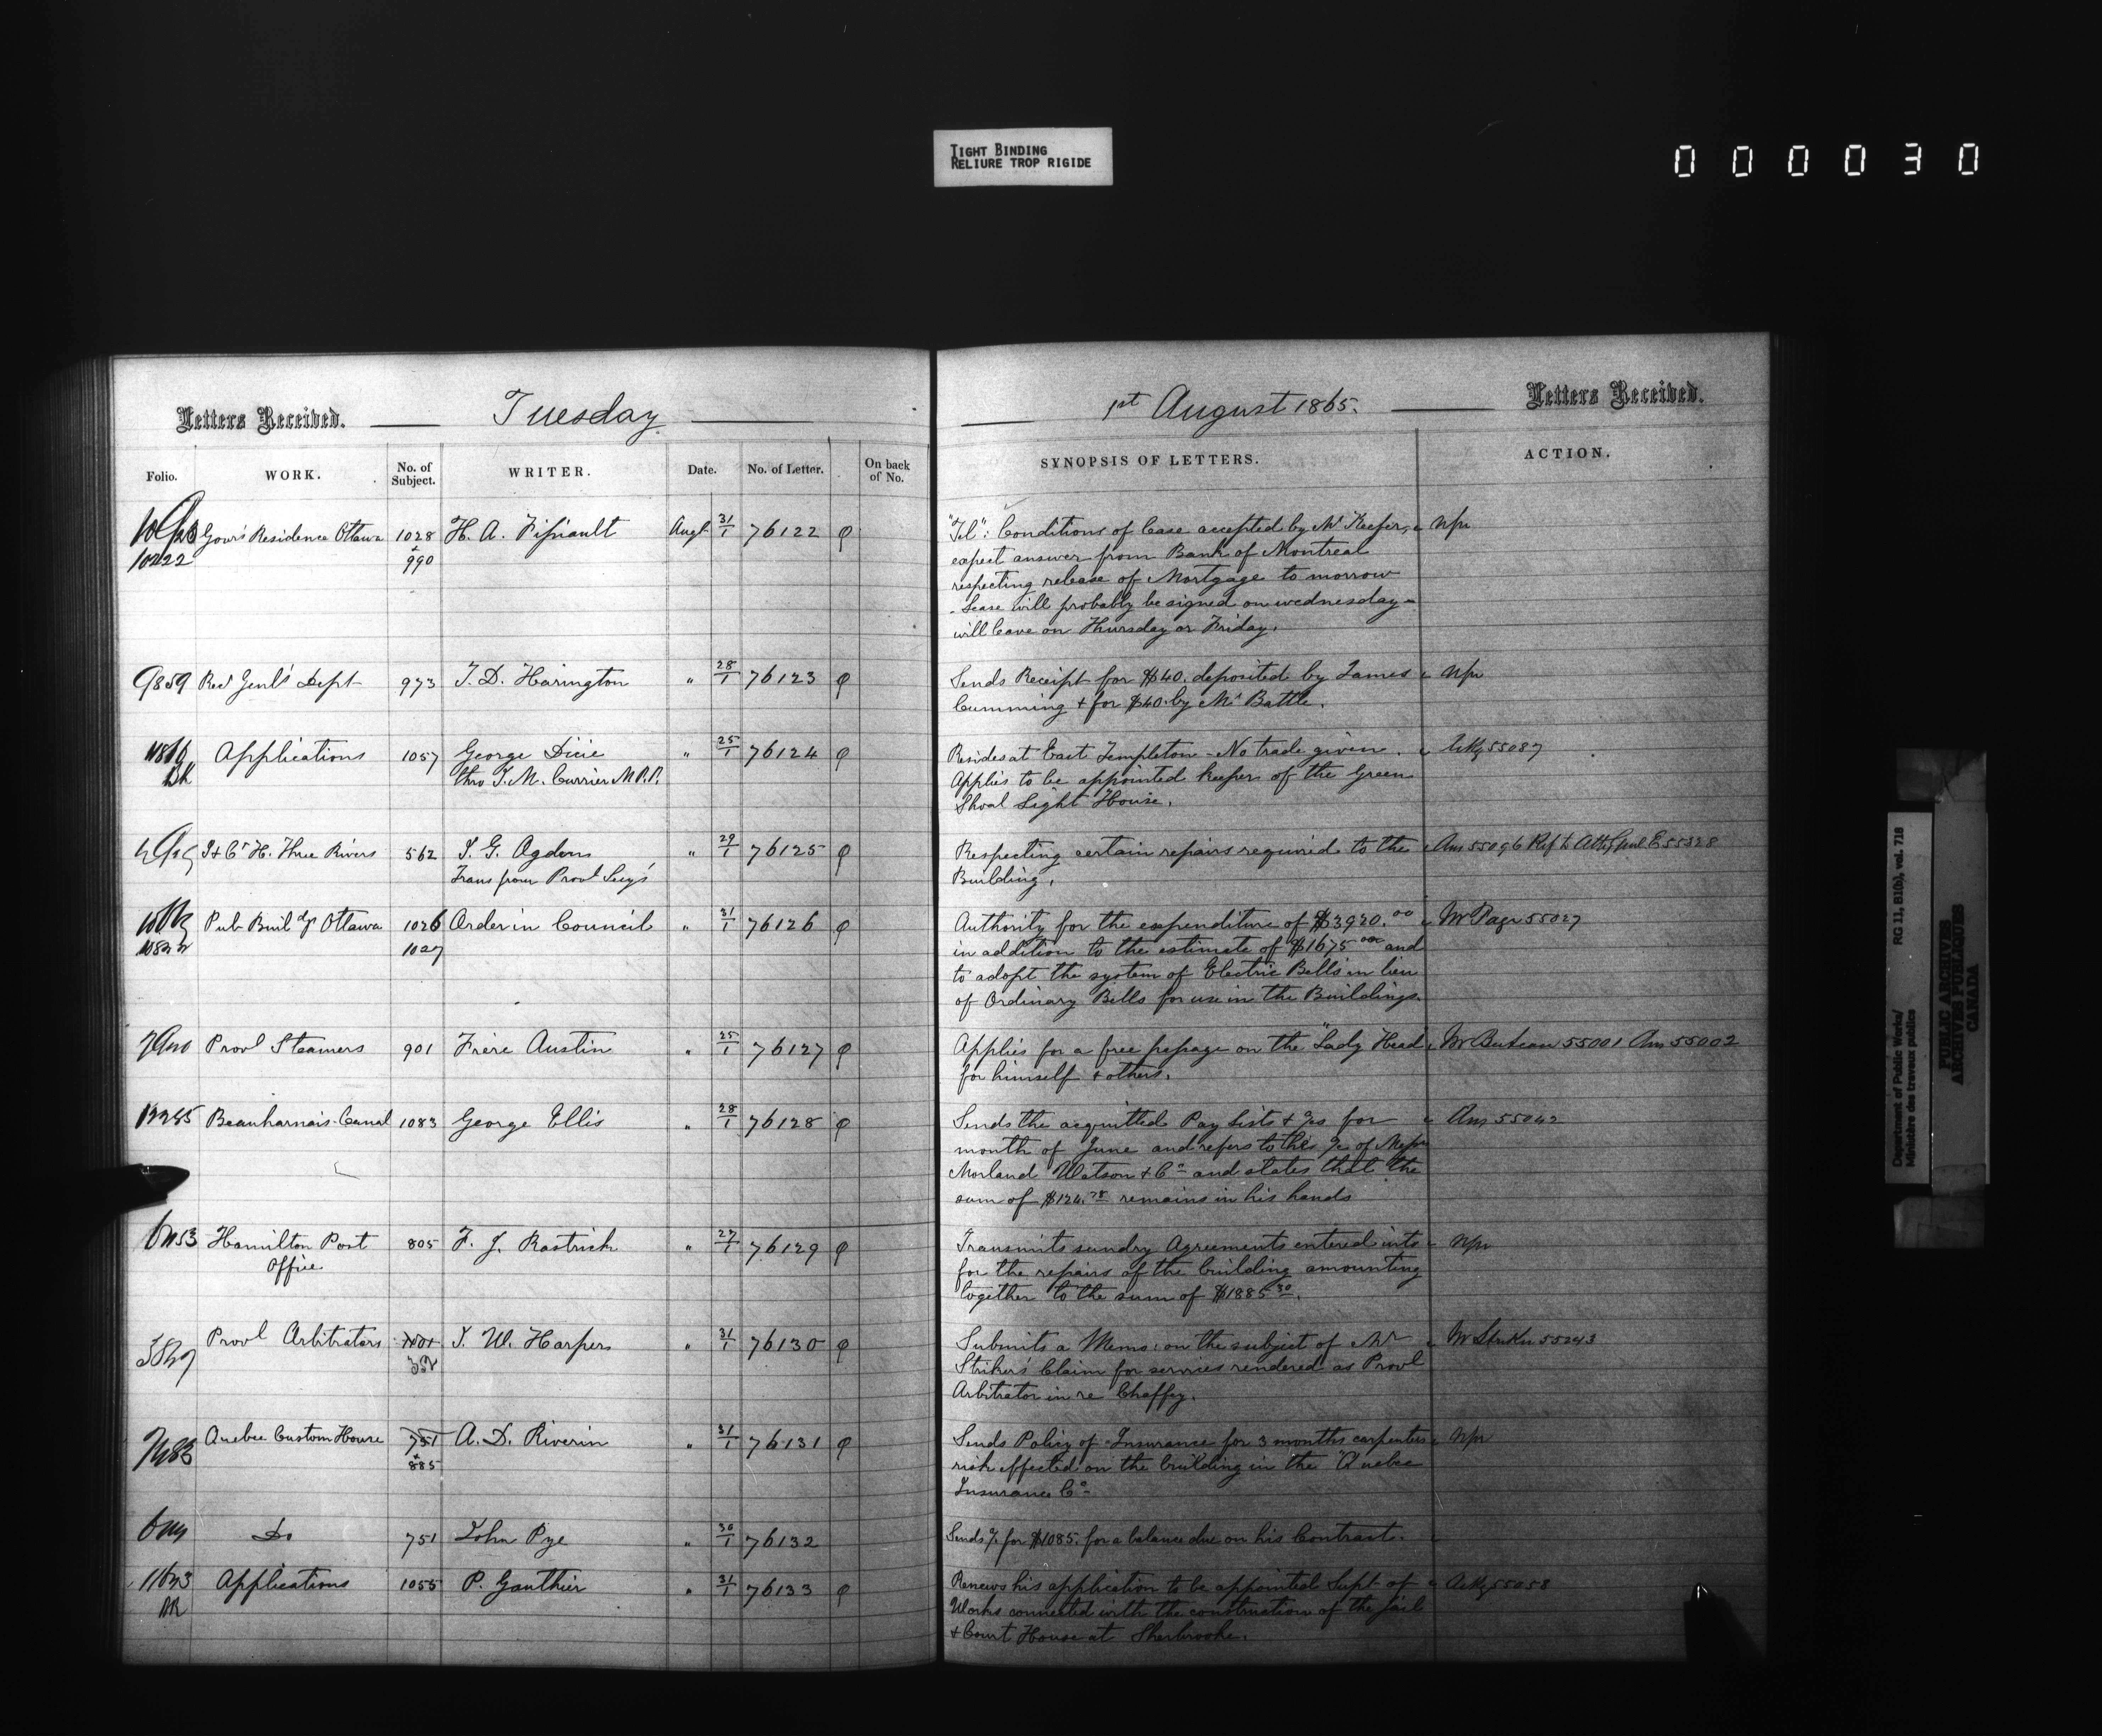 TIGHT BINDING
RELIURE TROP RIGIDE
000030
Letters Received. Tuesday 1st August 1865. Letters Received.
Folio. WORK. No. of Subject. WRITER. Date. No. of Letter. On back of No. SYNOPSIS OF LETTERS. ACTION.
Gov's Residence Ottawa 1028 H. A. Augt 31/1 76122 φ "Tel": Conditions of lease accepted by Mr Keefer, npr
10222 + 990 expect answer from Bank of Montreal
respecting release of Mortgage to morrow
- Lease will probably be signed on wednesday -
will leave on Thursday or Friday.
9859 Recr Genl's Dept 973 T. D. Harington " 28/1 76123 φ Sends Receipt for $40. deposited by James npr
Cumming + for $40. by Mr Battle.
Applications 1057 George Dicie " 25/1 76124 φ Resides at East Templeton - No trade given. Ackg 55087
thro J. M. Currier M.P.P. Applies to be appointed keeper of the Green
Shoal Light House.
J + Ct H. Three Rivers 562 J. G. Ogden " 29/1 76125 φ Respecting certain repairs required to the Ans 55096 Ref to Atty Genl E 55328
Trans from Provl Secy's Building.
Pub Buildgs Ottawa 1026 Order in Council " 31/1 76126 φ Authority for the expenditure of $3920.00 Mr Page 55027
1027 in addition to the estimate of $1675 00 and
to adopt the system of Electric Bells in lieu
of Ordinary Bells for use in the Buildings.
Provl Steamers 901 Frere Austin " 25/1 76127 φ Applies for a free passage on the "Lady Head Mr Buteau 55001 Ans 55002
for himself + others.
Beauharnois Canal 1083 George Ellis " 28/1 76128 φ Sends the acquitted Pay Lists + for Ans 55042
month of June and refers to the of Messrs
Morland Watson + Co and states that the
sum of $124.78 remains in his hands
Hamilton Post 805 F. J. Rastrick " 27/1 76129 φ Transmits sundry Agreements entered into npr
Office for the repairs of the building amounting
together to the sum of $1885 30.
Provl Arbitrators J. W. Harper " 31/1 76130 φ Submits a Memo: on the subject of Mr Mr Striker 55243
Striker's Claim for services rendered as Provl
Arbitrator in re Chaffey.
Quebec Custom House 751 A. D. Riverin " 31/1 76131 φ Sends Policy of Insurance for 3 months carpenters npr
+ 885 risk effected on the building in the "Quebec
Insurance Co
Do 751 John Pye " 30/1 76132 Sends for $1085. for a balance due on his Contract.
Applications 1055 P. Gauthier " 31/1 76133 φ Renews his application to be appointed Supt of Ackg 55058
Works connected with the construction of the Jail
+ Court House at Sherbrooke.
Department of Public Works/ RG 11, B1(b), vol. 718
Ministère des travaux publics
PUBLIC ARCHIVES
ARCHIVES PUBLIQUES
CANADA